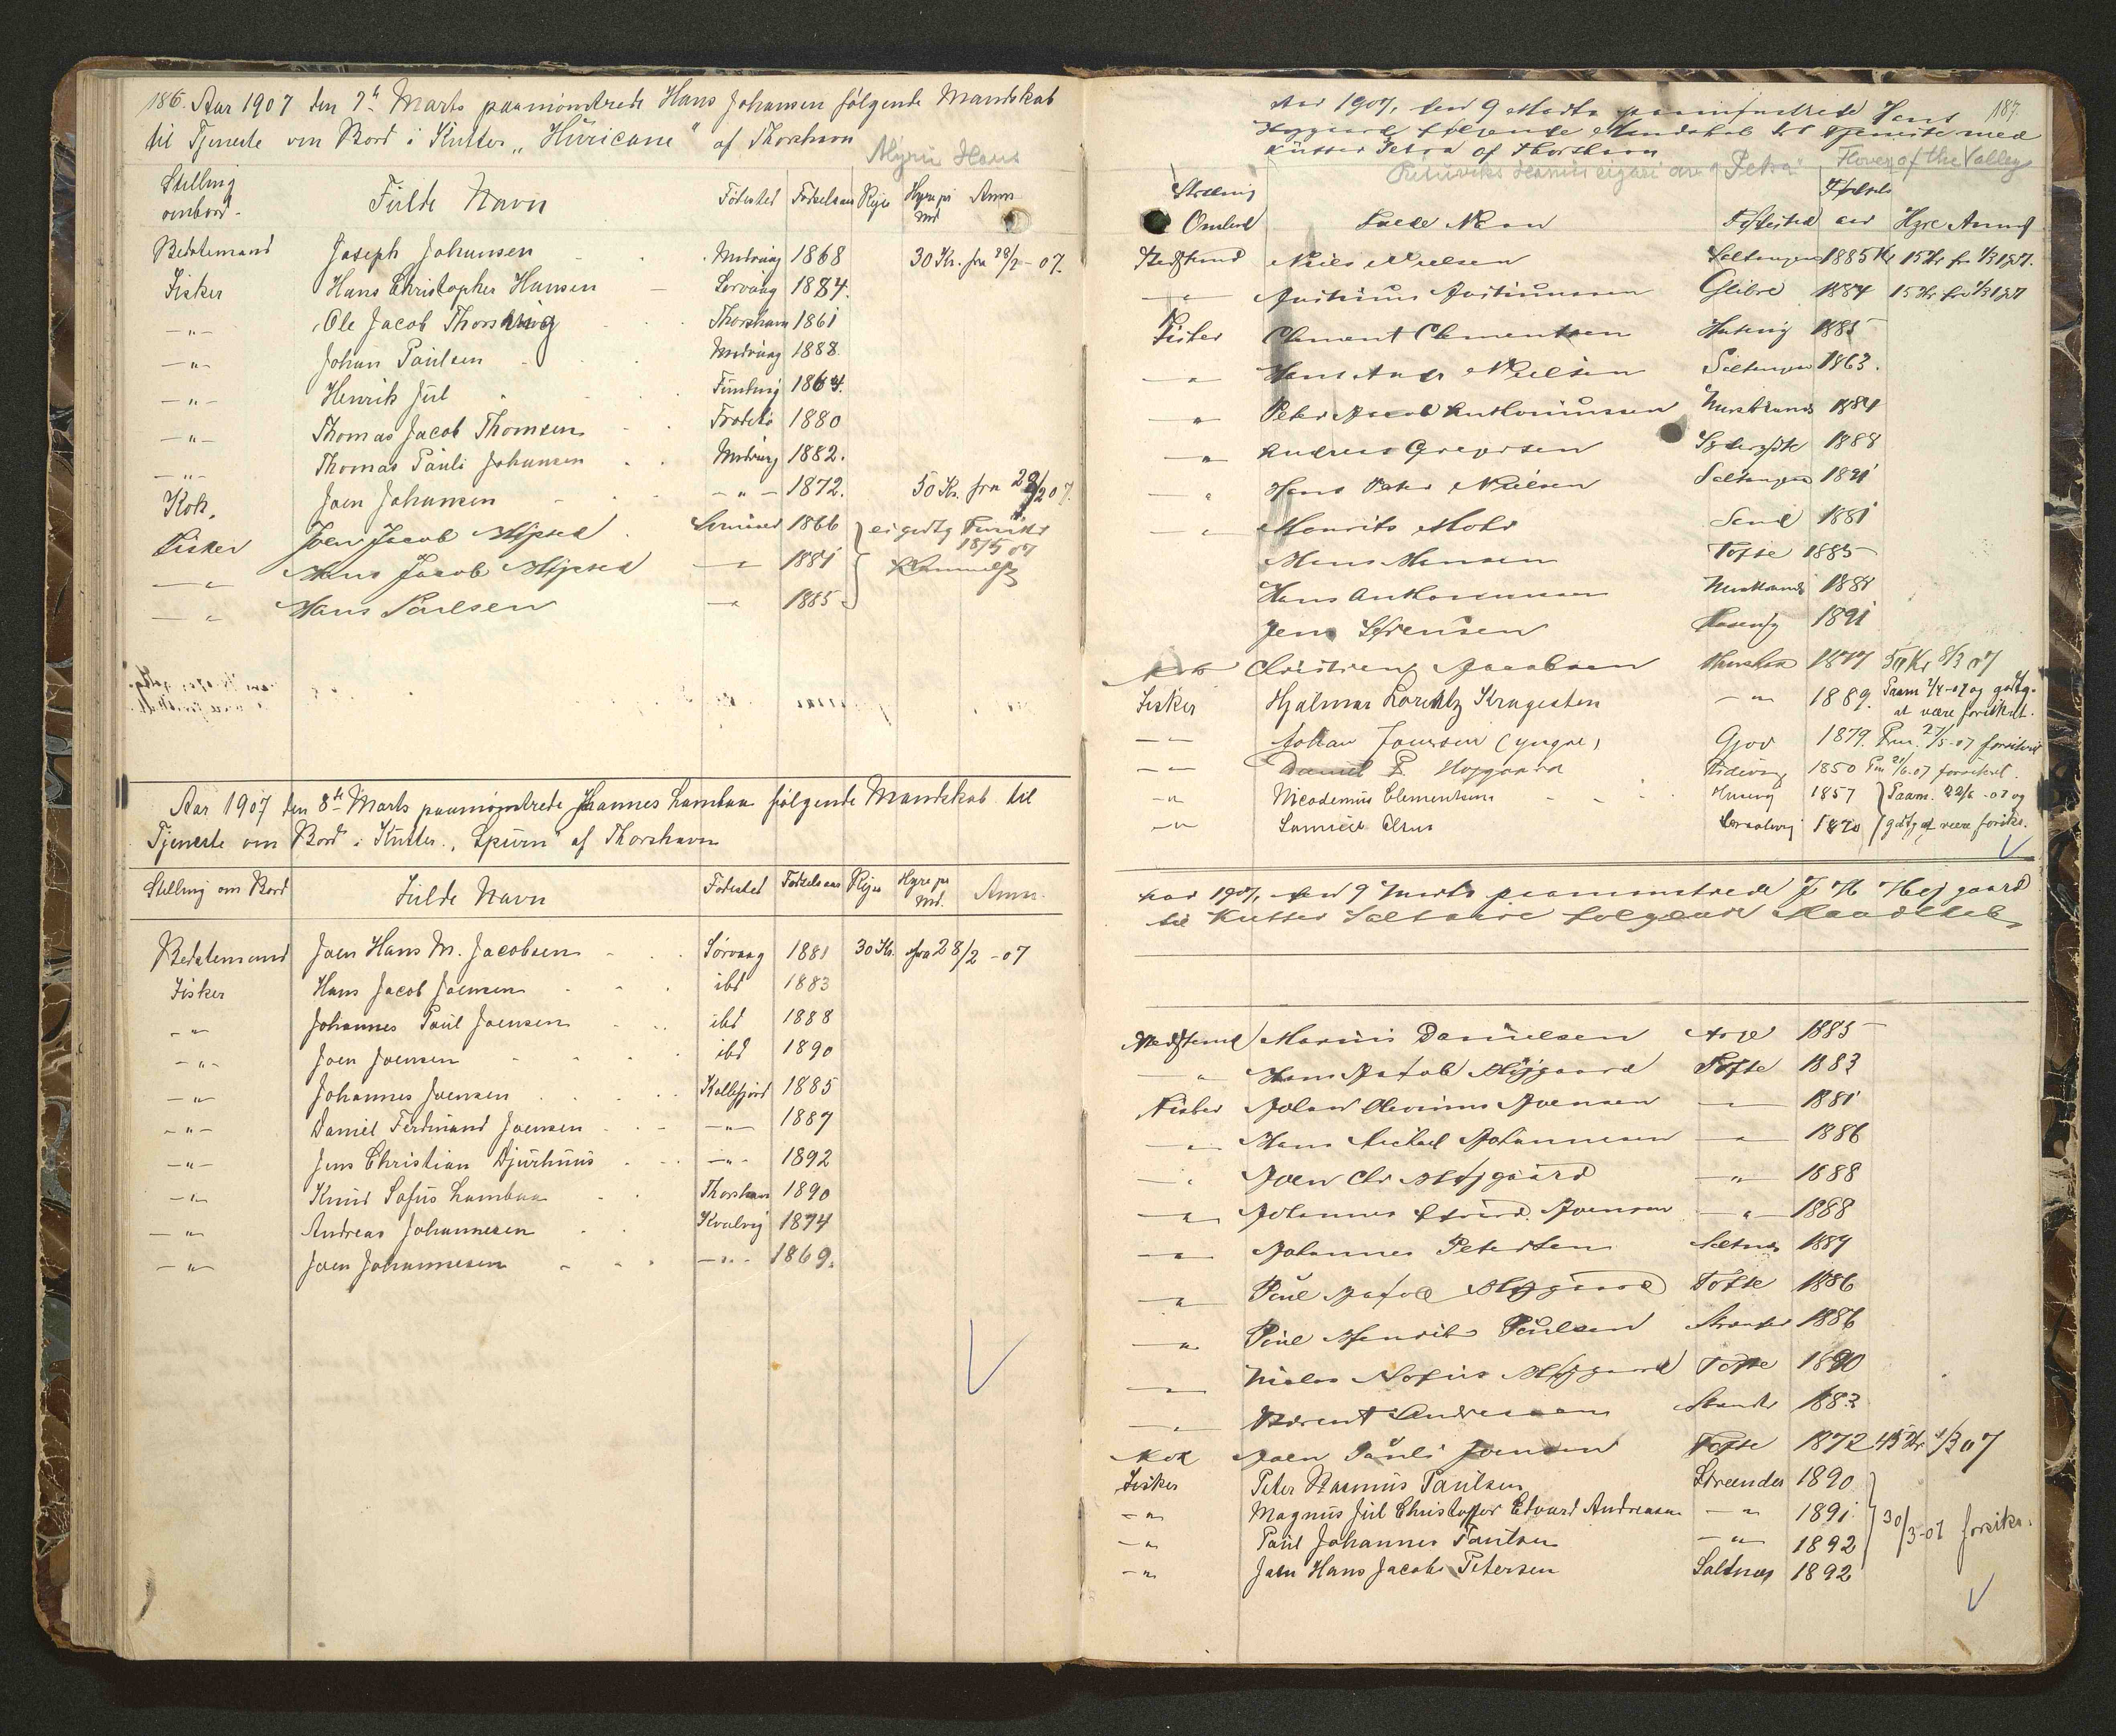 186. Aar 1907 den 7de Marts paamønstrede Hans Johansen følgende Mandskab
til Tjeneste om Bord i Kutter "Huricane" af Thorshavn
Hans
Stilling ombord. Fulde Navn Fødested Fødselsaar Rejse Hyre pr Md Anm.
Bedstemand Joseph Johansen Midvaag 1868 30 Kr. fra 28/2-07.
Fisker Hans Christopher Hansen Sørvaag 1884.
-"- Ole Jacob Thorshavn 1861
-"- Johan Paulsen Midvaag 1888.
-"- Henrik Jul 1864.
-"- Thomas Jacob Thomsen 1880
-"- Thomas Pauli Johansen Midvaag 1882.
Kok. Joen Johansen -"- 1872. 50 Kr. fra 28/2 07.
Fisker Joen Jacob 1866
-"- Hans Jacob -"- 1881 18/5 07
-"- Hans Poulsen -"- 1885
Aar 1907 den 8de Marts paamønstrede Johannes Lambaa følgende Mandskab til
Tjeneste om Bord i Kutter "Spurn" af Thorshavn
Stilling om Bord Fulde Navn Fødested Fødselsaar Rejse Hyre pr Md. Anm.
Bedstemand Joen Hans M. Jacobsen Sørvaag 1881 30 Kr. fra 28/2 -07
Fisker Hans Jacob Joensen ibd 1883
-"- Johannes Paul Joensen ibd 1888
-"- Joen Joensen ibd 1890
-"- Johannes Joensen Kollefjord 1885
-"- Daniel Ferdinand Joensen -"- 1887
-"- Jens Christian Djurhuus -"- 1892
-"- Knud Sofus Lambaa Thorshavn 1890
-"- Andreas Johannesen Kvalvig 1874
-"- Joen Johannesen -"- 1869.
187.
Aar 1907, den 9 Marts paamønstrede Hans
Højgaard følgende Mandskab til Tjeneste med
Kutter Petra af Thorshavn
"Petra" Flover of the Valley
Stilling Ombord Fulde Navn Fødested Fødsels aar Hyre Anm
Bedstemd Niels Nielsen Seltangen 1885 Kr 15 Kr fr 1/3 1907.
-"- Justinus Justinussen Glibre 1884 15 Kr fra 1/3 1907
Fisker Clement Clementsen 1885
-"- Hans Andr Nielsen Seltangen 1863.
-"- Peter Jacob Anthoniussen 1884
-"- Andreas Gregersen 1888
-"- Hans Peter Nielsen Seltangen 1891
-"- Mourits Mohr Sand 1881
Hans Hansen Tofte 1885
Hans Anthoniussen 1881
Jens Sørensen 1891
Kok Christian Jacobsen Thorshavn 1877 50 Kr 8/3 07
Fisker Hjalmar Lorentz Kragesten -"- 1889. Paam 2/4-07 og godtg. at være forsikret.
-"- Johan Joensen (yngre) Gjov 1879. Pm. 27/5-07 forsikret
-"- Daniel P. Højgaard 1850 Pm 21/6-07 forsikret.
-"- Nicodemus Clementsen 1857 Paam. 22/6-07 og
-"- Samuel Olsen 1870 godtg at være forsikr.
Aar 1907, den 9 Marts paamønstrede J H Højgaard
til Kutter følgende Mandskab
Bedstemd Marius Danielsen 1885
-"- Hans Jakob Højgaard Tofte 1883
Fisker Johan Olevinus Joensen -"- 1881
-"- Hans Michael Johannesen -"- 1886
-"- Joen Chr Højgaard -"- 1888
-"- Johannes Joensen -"- 1888
-"- Johannes Petersen Saltnæs 1889
-"- Poul Jakob Højgaard Tofte 1886
-"- Poul Henrik Poulsen Strænder 1886
-"- Niclas Nofus Højgaard Tofte 1890
-"- Berent Andreasen Strænder 1883
Kok Joen Pauli Joensen Tofte 1872 45 Kr 1/3 07
Fisker Peter Rasmus Paulsen Strænder 1890
-"- Magnus Jul Christoffer Edvard Andreasen -"- 1891.
-"- Paul Johannes Paulsen -"- 1892 30/3-07 forsikr.
-"- Joen Hans Jacob Petersen Saltnæs 1892